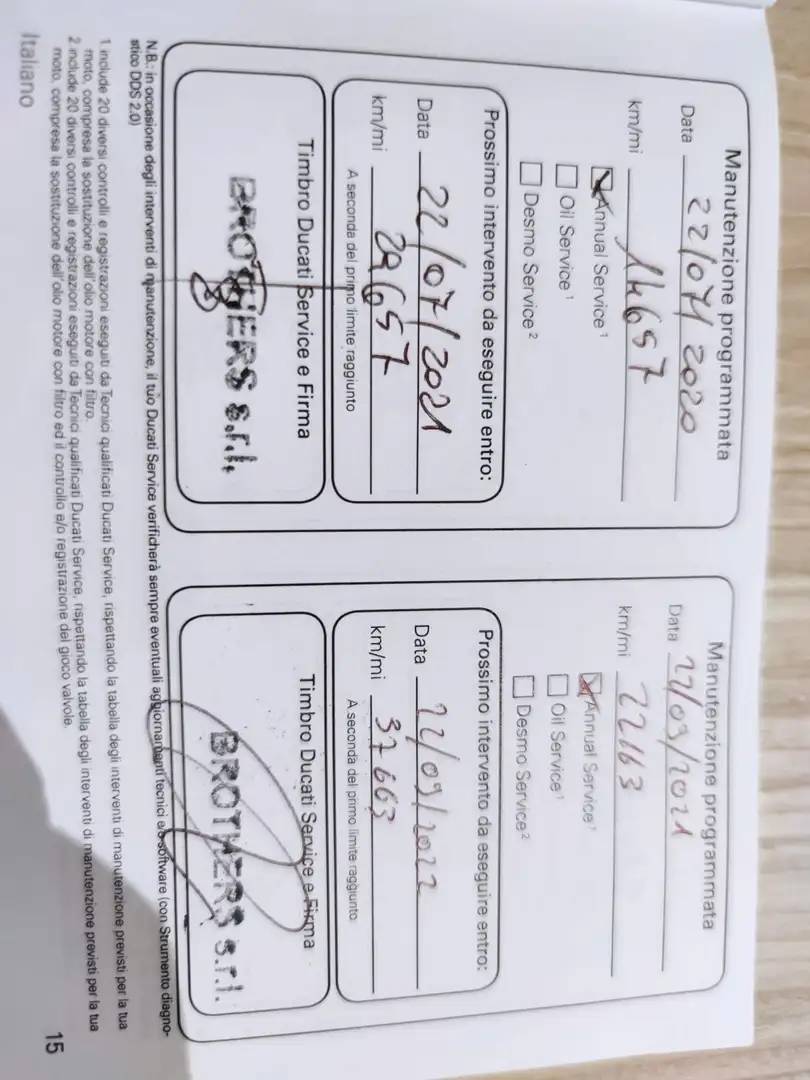 Manutenzione programmata
Data 22/07/2020
km/mi 14657
Annual Service 1
Oil Service 1
Desmo Service 2
Prossimo intervento da eseguire entro:
Data 22/07/2021
km/mi 29657
A seconda del primo limite raggiunto
Timbro Ducati Service e Firma
BROTHERS s.r.l.
Manutenzione programmata
Data 22/09/2021
km/mi 22663
Annual Service 1
Oil Service 1
Desmo Service 2
Prossimo intervento da eseguire entro:
Data 22/09/2022
km/mi 37663
A seconda del primo limite raggiunto
Timbro Ducati Service e Firma
BROTHERS s.r.l.
N.B.: in occasione degli interventi di manutenzione, il tuo Ducati Service verificherà sempre eventuali aggiornamenti tecnici e/o software (con Strumento diagno-
stico DDS 2.0)
1. include 20 diversi controlli e registrazioni eseguiti da Tecnici qualificati Ducati Service, rispettando la tabella degli interventi di manutenzione previsti per la tua
moto, compresa la sostituzione dell'olio motore con filtro.
2. include 20 diversi controlli e registrazioni eseguiti da Tecnici qualificati Ducati Service, rispettando la tabella degli interventi di manutenzione previsti per la tua
moto, compresa la sostituzione dell'olio motore con filtro ed il controllo e/o registrazione del gioco valvole.
Italiano
15